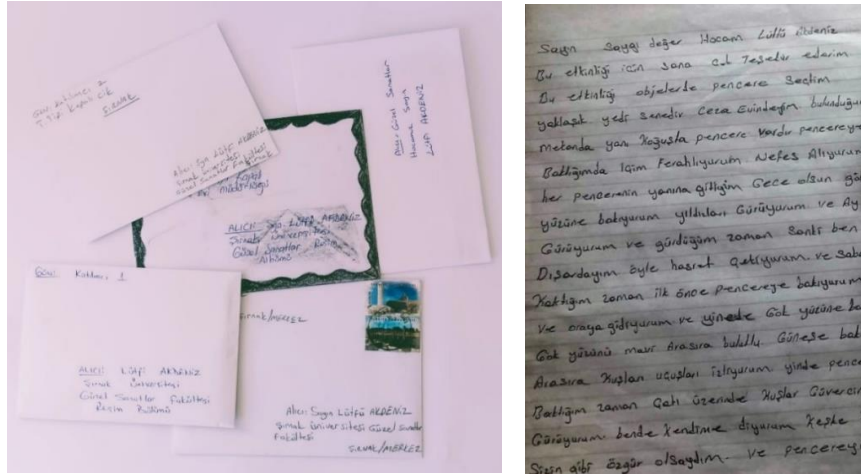 Gön: Katılımcı 2
T Tipi Kapalı Cik
ŞIRNAK
Alıcı: Sayın Lütfi AKDENİZ
Şırnak Üniversitesi
Güzel Sanatlar Fakültesi
Alıcı: Güzel Sanatlar
Hocamız Sayın
Lütfi AKDENİZ
ALICI: Sayın Lütfi AKDENİZ
Şırnak Üniversitesi
Güzel Sanatlar Resim
Bölümü
Gön: Katılımcı 1
ALICI: Lütfi AKDENİZ
Şırnak Üniversitesi
Güzel Sanatlar Fakültesi
Resim Bölümü
Şırnak/MERKEZ
Alıcı: Sayın Lütfü AKDENİZ
Şırnak üniversitesi Güzel Sanatlar
Fakültesi
ŞIRNAK/MERKEZ
Sayın Saygı değer Hocam Lütfü
Bu etkinliği için sana çok Teşekür ederim
Bu etkinliği objelerde pencere Seçtim
yaklaşık yedi senedir Ceza Evindeyim bulunduğum
mekanda yan Koğuşta pencere Vardır pencereye
Baktığımda İçim Ferahlıyurum Nefes Alıyurum
her pencerenin yanına gittiğim Gece olsun
yüzüne bakıyurum yıldızları Görüyurum ve Ay
Görüyurum ve gördüğüm zaman Sanki ben
Dışardayım öyle hasret çekiyurum. ve
Kalktığım zaman ilk önce Prencereye bakıyurum
Ve oraya gidiyurum ve yinede Gök yüzüne
Gök yüzünü mavi Arasıra bulutlu. Güneşe
Arasıra Kuşları uçuşları izliyurum yinde
Baktığım zaman Çatı üzerinde Kuşlar Güvercin
Görüyurum bende Kendime diyurum Keşke
Sizin gibi özgür olsaydım. ve pencereye